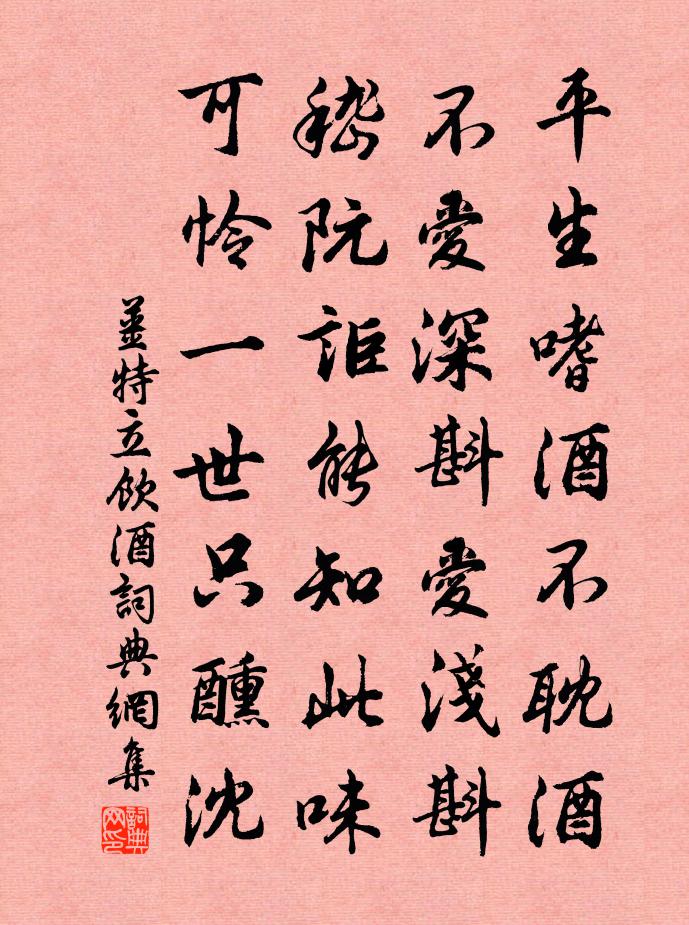 平生嗜酒不耽酒
不愛深斟愛淺斟
嵇阮詎能知此味
可憐一世只醺沈
姜特立飲酒詞典網集
詞典网印